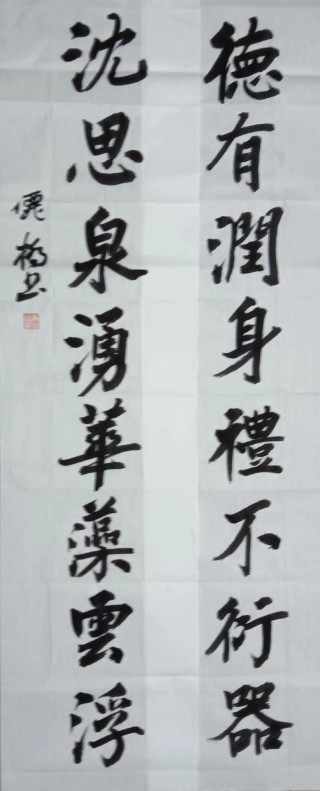 德有潤身禮不衍器
沈思泉湧華藻雲浮
橋书